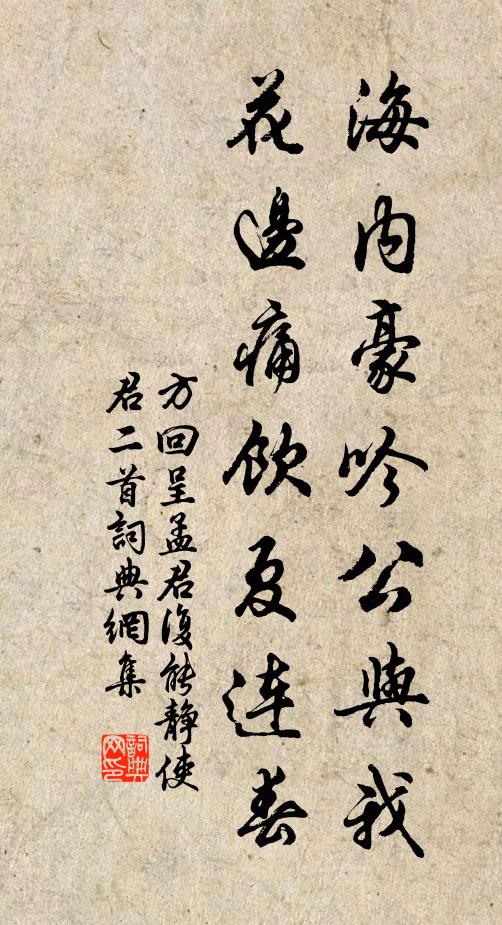 海内豪吟公與我
花邊痛飲夏連春
方回呈孟君復能静使
君二首詞典網集
詞典
网印